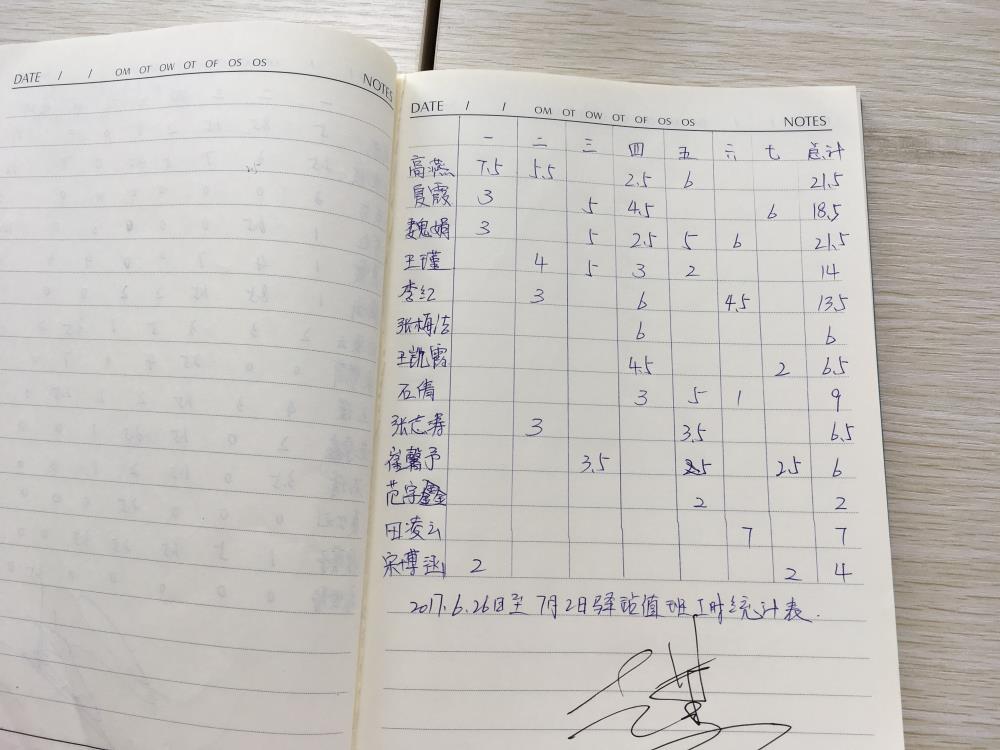 DATE / / OM OT OW OT OF OS OS
NOTES
DATE / / OM OT OW OT OF OS OS
NOTES
一 二 三 四 五 六 七 总计
高燕 7.5 5.5 2.5 6 21.5
夏霞 3 5 4.5 6 18.5
魏娟 3 5 2.5 5 6 21.5
王瑾 4 5 3 2 14
李红 3 6 4.5 13.5
张梅洁 6 6
王凯霞 4.5 2 6.5
石倩 3 5 1 9
张志涛 3 3.5 6.5
崔馨予 3.5 2.5 6
范字鑫 2 2
田凌云 7 7
宋博涵 2 2 4
2017.6.26日至7月2日驿站值班工时统计表.